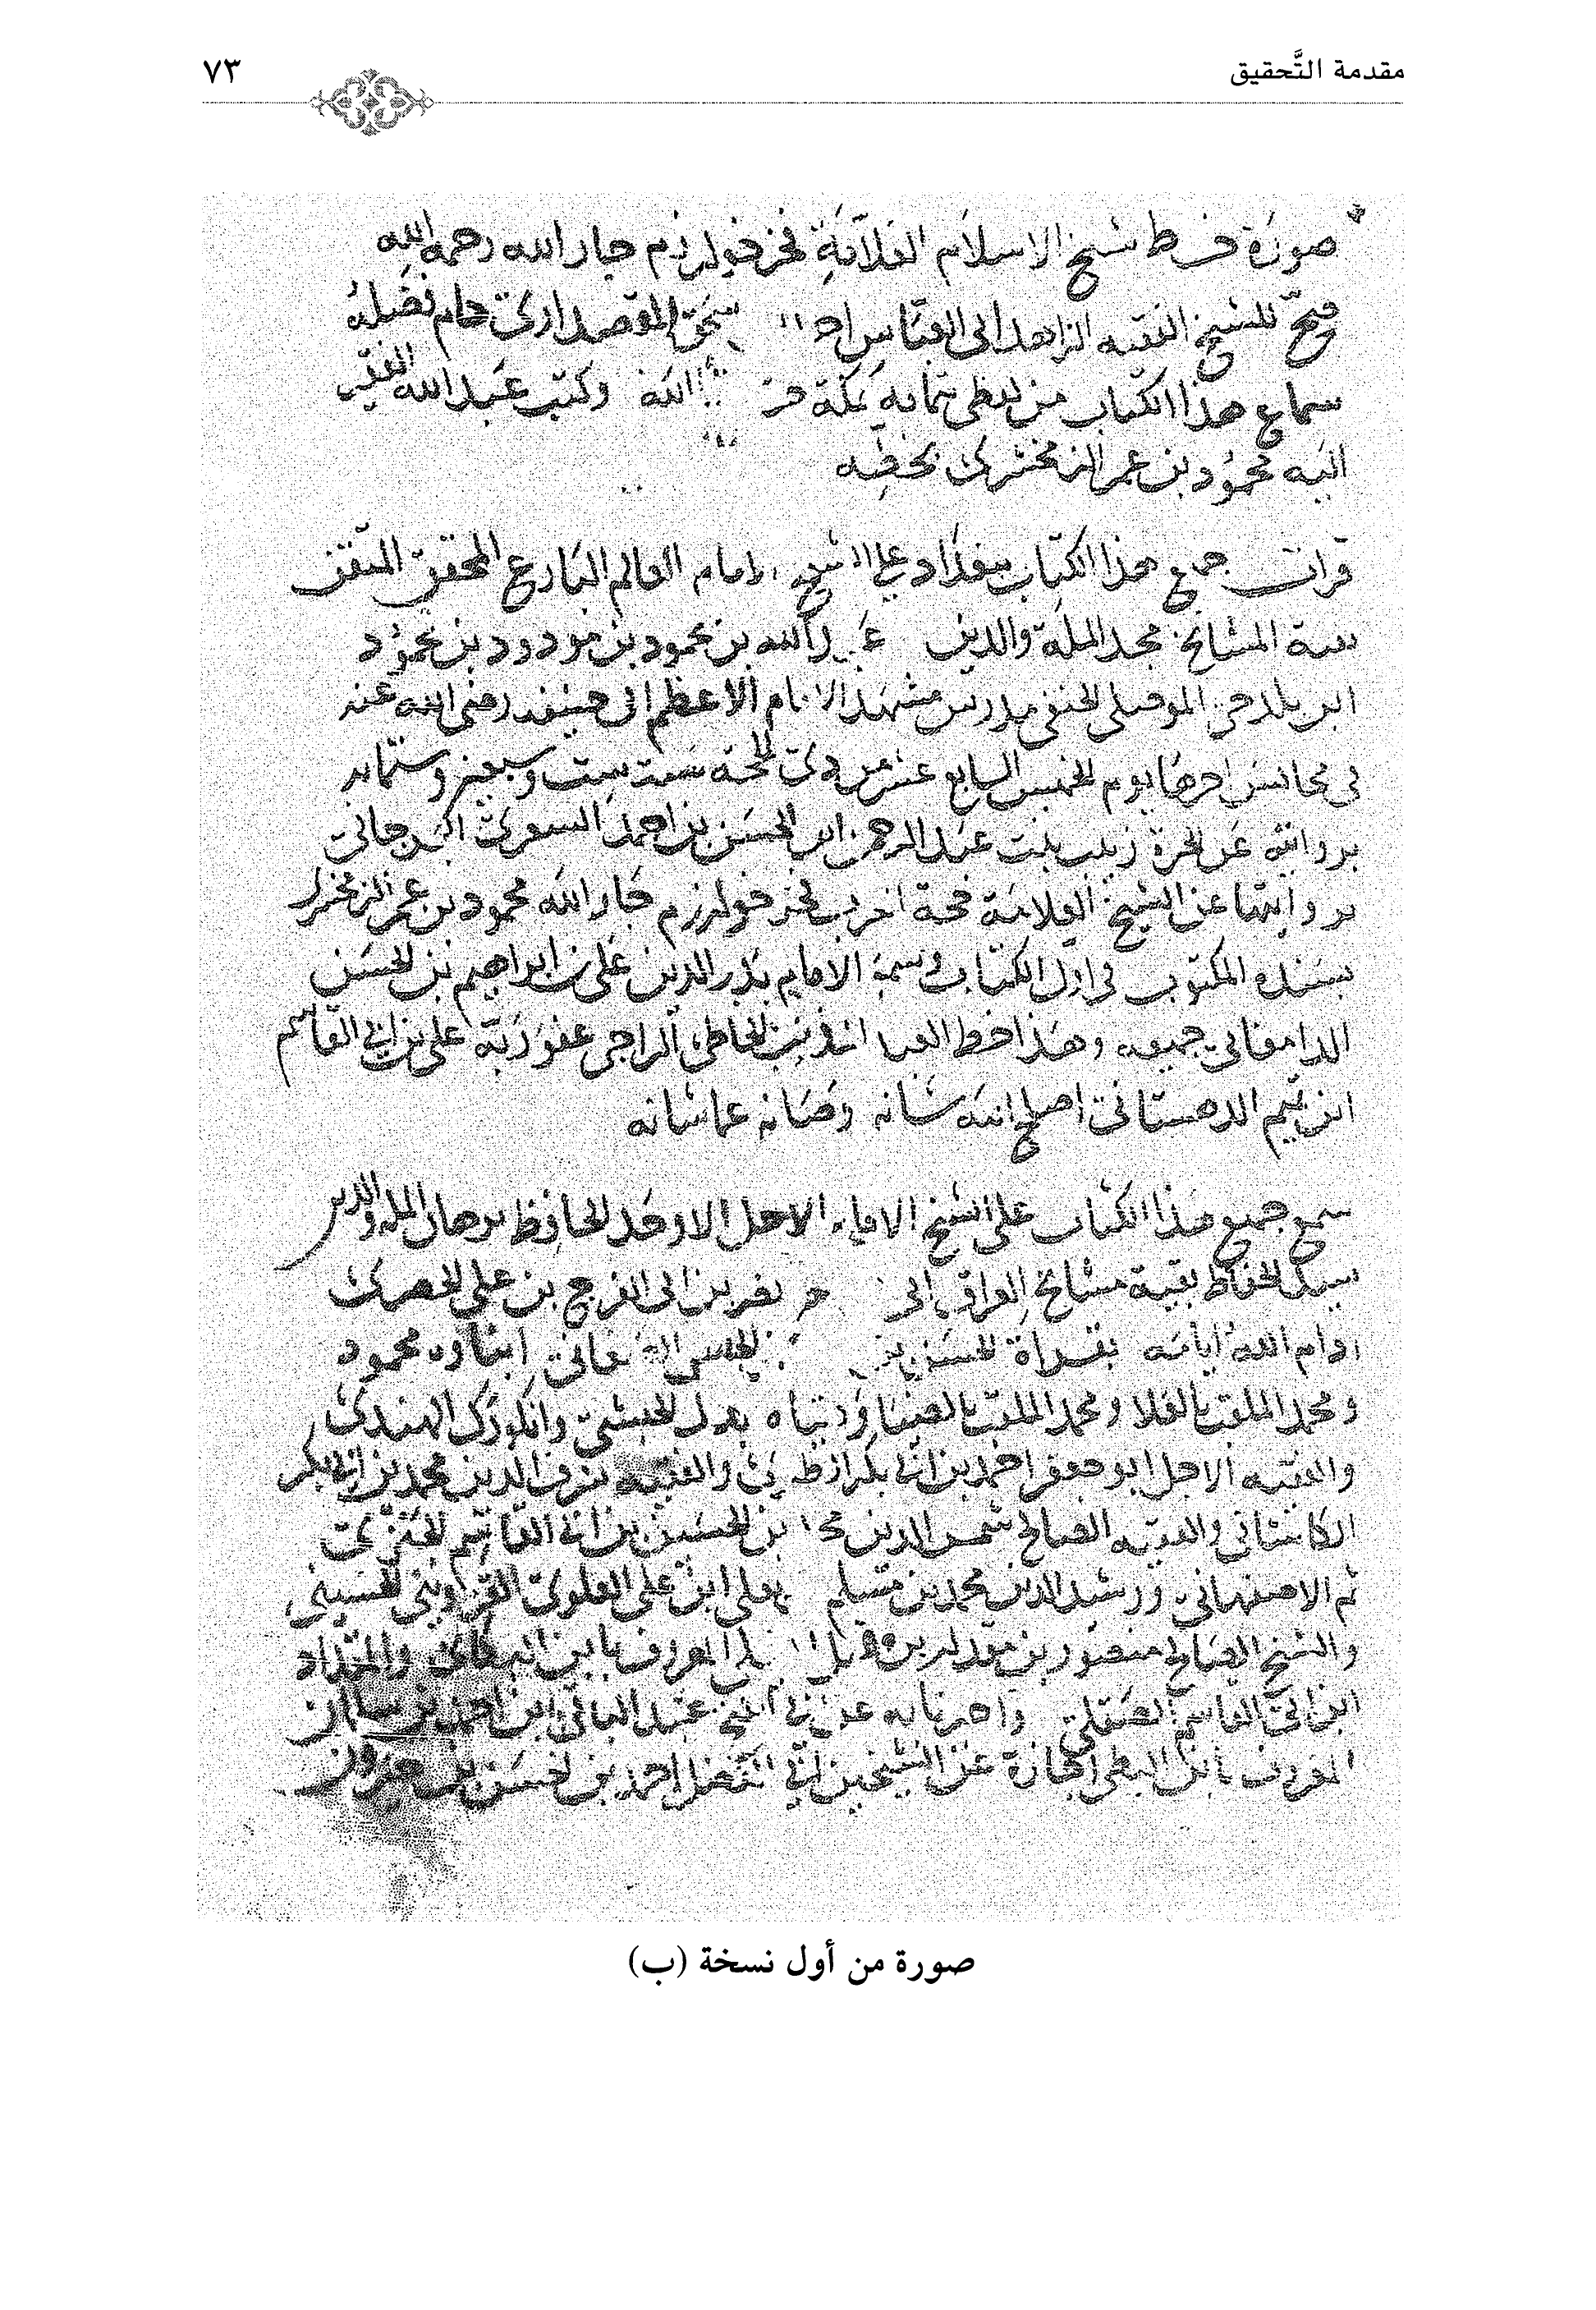 مقدمة التَّحقيق ٧٣
صورة خط شيخ الاسلام العلامة فخر خوارزم جار الله رحمه الله
صح للشيخ الفقيه الزاهد ابى العباس
سماع هذا الكتاب من لفظى بمكة وكتب عبد الله الفقير
اليه محمود بن عمر الزمخشرى بخطه
قرات جميع هذا الكتاب ببغداد على الشيخ الامام العالم البارع المحقق المتقن
بقية المشايخ مجد الملة والدين عبد الله بن محمود بن مودود بن محمود
ابن بلدجى الموصلى الحنفى مدرس مشهد الامام الاعظم ابى حنيفه رضى الله عنه
فى مجالس اخرها يوم الخميس السابع عشر من ذى الحجه سنة ست وسبعين وستمايه
بروايته عن الحرة زينب بنت عبد الرحمن ابن الحسن بن احمد السعرى الجرجانى
بروايتها عن الشيخ العلامة فخر خوارزم جار الله محمود بن عمر الزمخشرى
بسنده المكتوب فى اول الكتاب وسمع الامام بدر الدين على بن ابراهيم بن الحسن
الدامغانى جميعه وهذا خط العبد المذنب الخاطى الراجى عفو ربه على بن ابى القاسم
ابن تميم الدهستانى اصلح الله شانه وصانه عما شانه
سمع جميع هذا الكتاب على الشيخ الامام الاجل الاوحد الحافظ برهان الملة والدين
سيد الحفاظ بقية مشايخ العراق ابى نصر بن ابى الفرج بن على الحصرى
ادام الله ايامه بقراة الحسن بن محمود
ومحمد الملقب بالعلا ومحمد الملقب بالضيا الهندى
والفقيه الاجل ابو جعفر احمد بن والفقيه شرف الدين محمد بن ابى بكر
الكاشانى والفقيه الصالح شمس الدين بن الحسين بن ابى القاسم
ثم الاصفهانى ورشيد الدين محمد بن ابن على العلوى القزوينى الحسينى
والشيخ الصالح منصور بن المعروف بابن والمقداد
ابن ابى القاسم الصقلى واخبرنا به عن عبد الباقى ابن احمد بن سلمان
المعروف بابن البطى اجازة عن الشيخين ابى الفضل احمد بن الحسن بن خيرون
صورة من أول نسخة (ب)